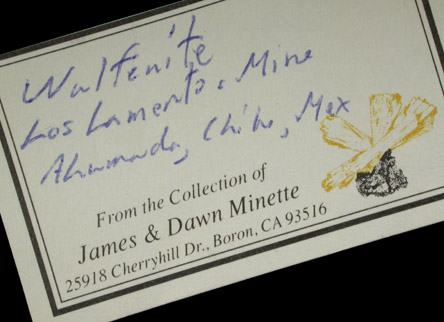 Wulfenite
Los Lamentos, Mine
Ahumada, Chih., Mex
From the Collection of
James & Dawn Minette
25918 Cherryhill Dr., Boron, CA 93516